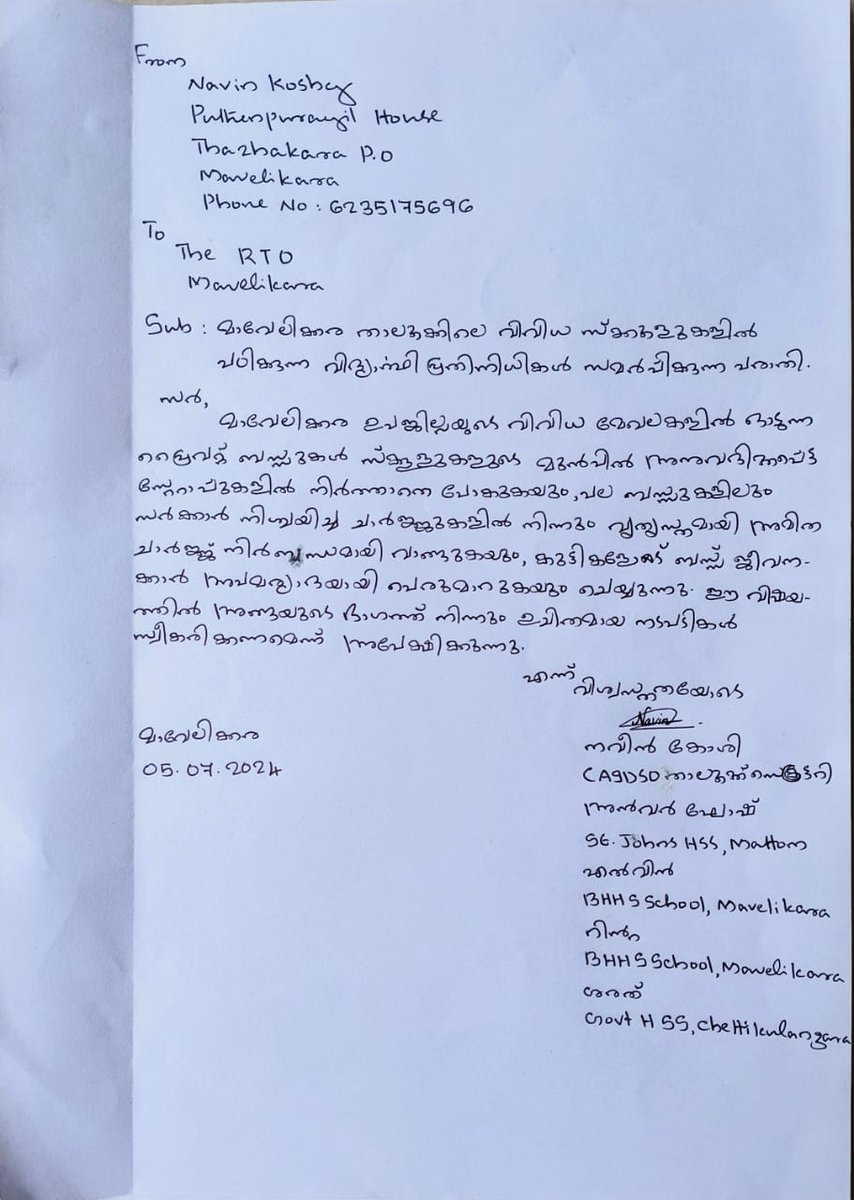 From
Navin Koshy
Puthenpurayil House
Thazhakara P.O
Mavelikara
Phone No : 6235175696
To
The RTO
Mavelikara
Sub : മാവേലിക്കര താലൂക്കിലെ വിവിധ സ്ക്കൂളുകളിൽ
പഠിക്കുന്ന വിദ്യാർത്ഥി പ്രതിനിധികൾ സമർപ്പിക്കുന്ന പരാതി.
സർ,
മാവേലിക്കര ഉപജില്ലയുടെ വിവിധ മേഖലകളിൽ ഓടുന്ന
പ്രൈവറ്റ് ബസ്സുകൾ സ്കൂളുകളുടെ മുൻപിൽ അനുവദിക്കപ്പെട്ട
സ്റ്റോപ്പുകളിൽ നിർത്താതെ പോകുകയും, പല ബസ്സുകളിലും
സർക്കാർ നിശ്ചയിച്ച ചാർജ്ജുകളിൽ നിന്നും വ്യത്യസ്തമായി അമിത
ചാർജ്ജ് നിർബന്ധമായി വാങ്ങുകയും, കുട്ടികളോട് ബസ്സ് ജീവന-
ക്കാർ അപമര്യാദയായി പെരുമാറുകയും ചെയ്യുന്നു. ഈ വിഷയ-
ത്തിൽ അങ്ങയുടെ ഭാഗത്ത് നിന്നും ഉചിതമായ നടപടികൾ
സ്വീകരിക്കണമെന്ന് അപേക്ഷിക്കുന്നു.
എന്ന് വിശ്വസ്തതയോടെ
Navin
മാവേലിക്കര
നവീൻ കോശി
05.07.2024
താലൂക്ക് സെക്രട്ടറി
അൻവർ ഘോഷ്
St. Johns HSS, Mattom
എൽവിൻ
BHHS School, Mavelikara
BHHS School, Mavelikara
ശരത്
Govt HSS, Chettikulangara